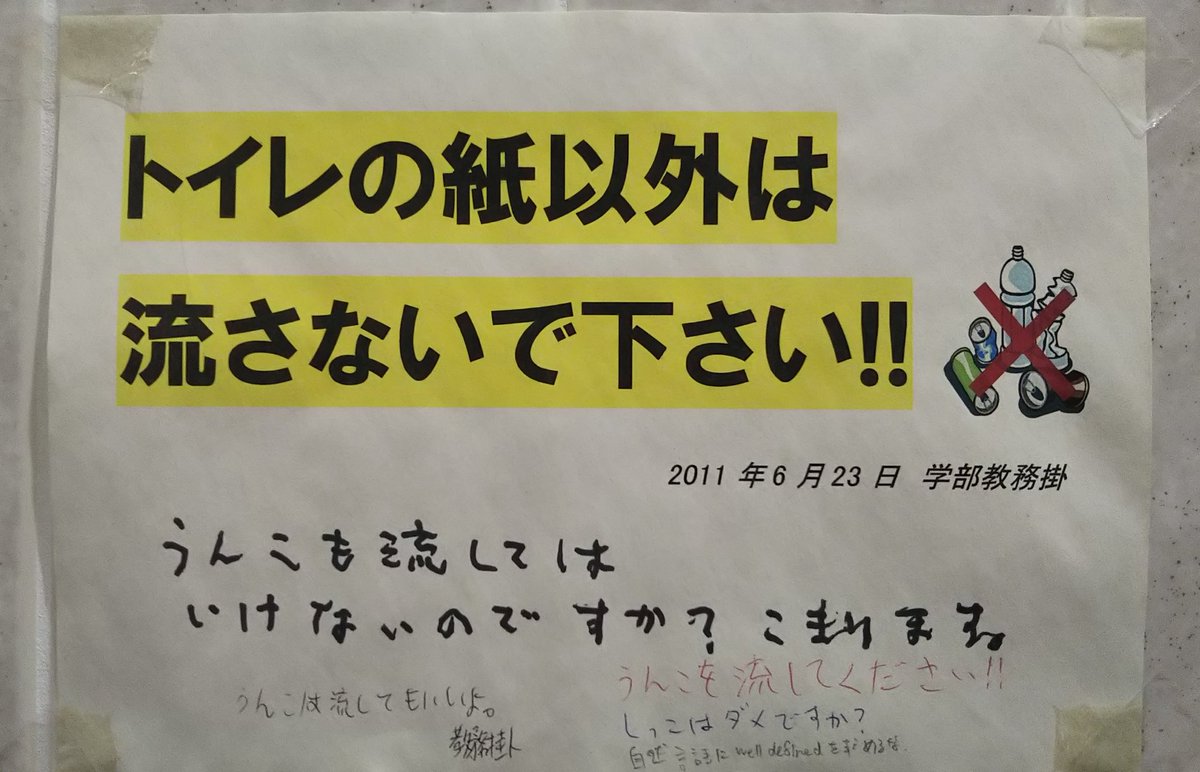 トイレの紙以外は
流さないで下さい!!
2011 年 6 月 23 日 学部教務掛
うんこも流しては
いけないのですか? こまります。
うんこを流してください!!
うんこは流してもいいよ。
教務掛
しっこはダメですか?
自然言語に well defined を求めるな.